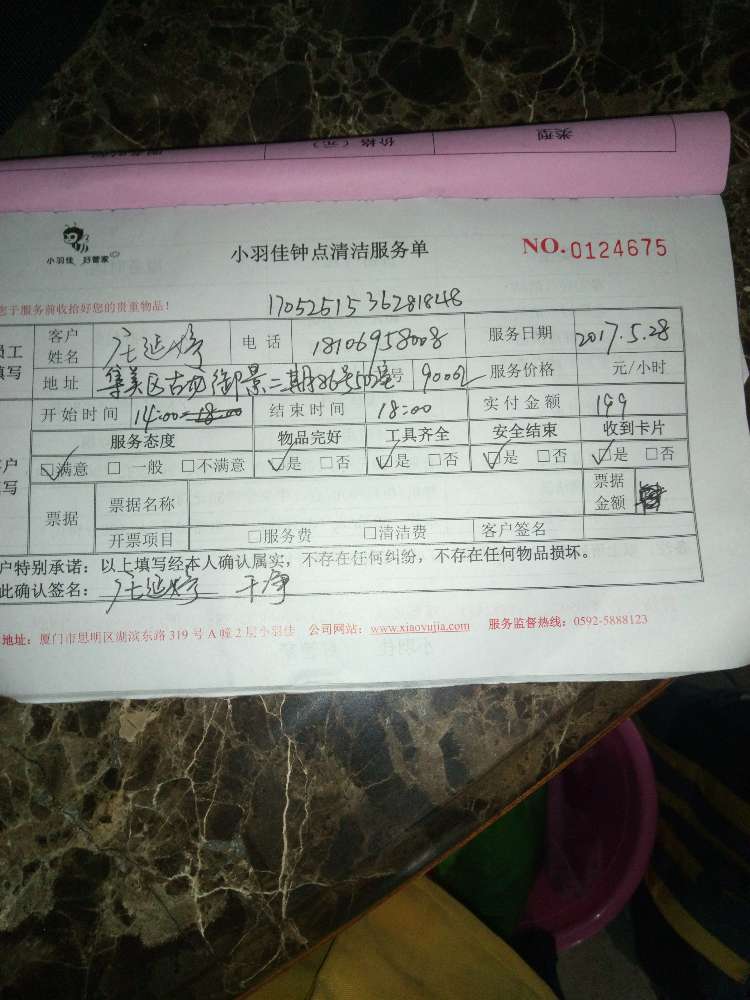 类型
价格（元）
小羽佳 好管家
小羽佳钟点清洁服务单
NO. 0124675
您于服务前收拾好您的贵重物品！
1705251536281848
员工
填写
客户
姓名
庄延婷
电 话
18106958008
服务日期
2017.5.28
地址
集美区古龙御景二期86号502室
号
服务价格
元/小时
开始时间
14:00
18:00
结束时间
18:00
实付金额
199
客户
填写
服务态度
物品完好
工具齐全
安全结束
收到卡片
☑满意 □ 一般 □不满意
☑是 □否
☑是 □否
☑是 □否
☑是 □否
票据
票据名称
票据
金额
开票项目
□服务费
□清洁费
客户签名
户特别承诺：以上填写经本人确认属实，不存在任何纠纷，不存在任何物品损坏。
此确认签名：庄延婷 干净
地址：厦门市思明区湖滨东路 319 号 A 幢 2 层小羽佳 公司网站：www.xiaoyujia.com 服务监督热线：0592-5888123